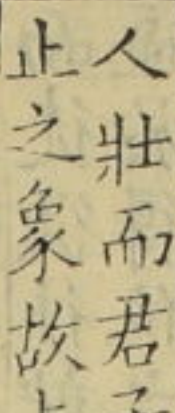 人壯而君子
止之象故